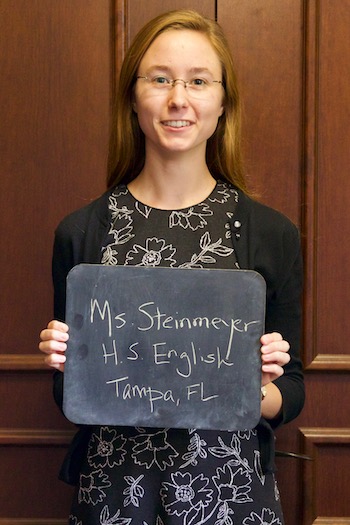 Ms. Steinmeyer
H.S. English
Tampa, FL